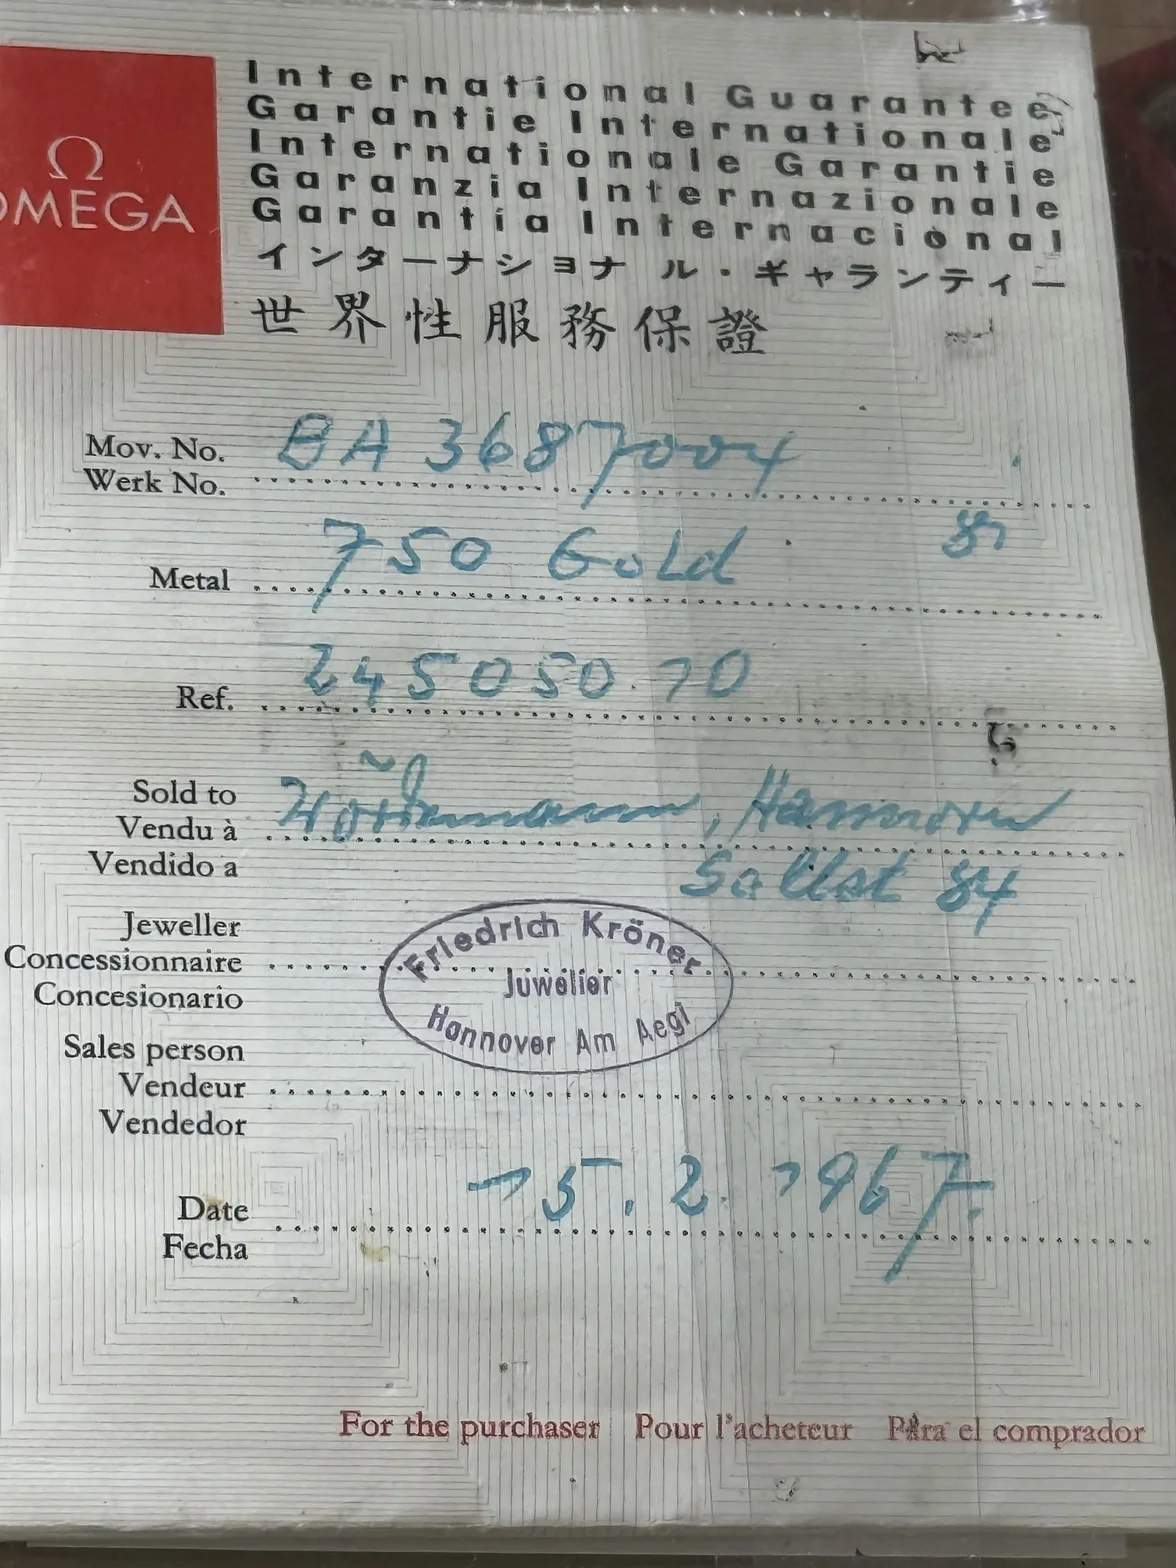 Ω
OMEGA
International Guarantee
Garantie Internationale
Internationale Garantie
Garanzia Internazionale
Garantia Internacional
インターナショナル・ギャランティー
世界性服務保證
Mov. No. BA 3687004
Werk No.
Metal 750 Gold
Ref. 245050.70
Sold to
Vendu à , Hannover
Vendido a Sallst 84
Jeweller
Concessionnaire
Concesionario
Friedrich Kröner
Juwelier
Hannover Am Aegi
Sales person
Vendeur
Vendedor
Date 15.2.1967.
Fecha
For the purchaser Pour l'acheteur Para el comprador